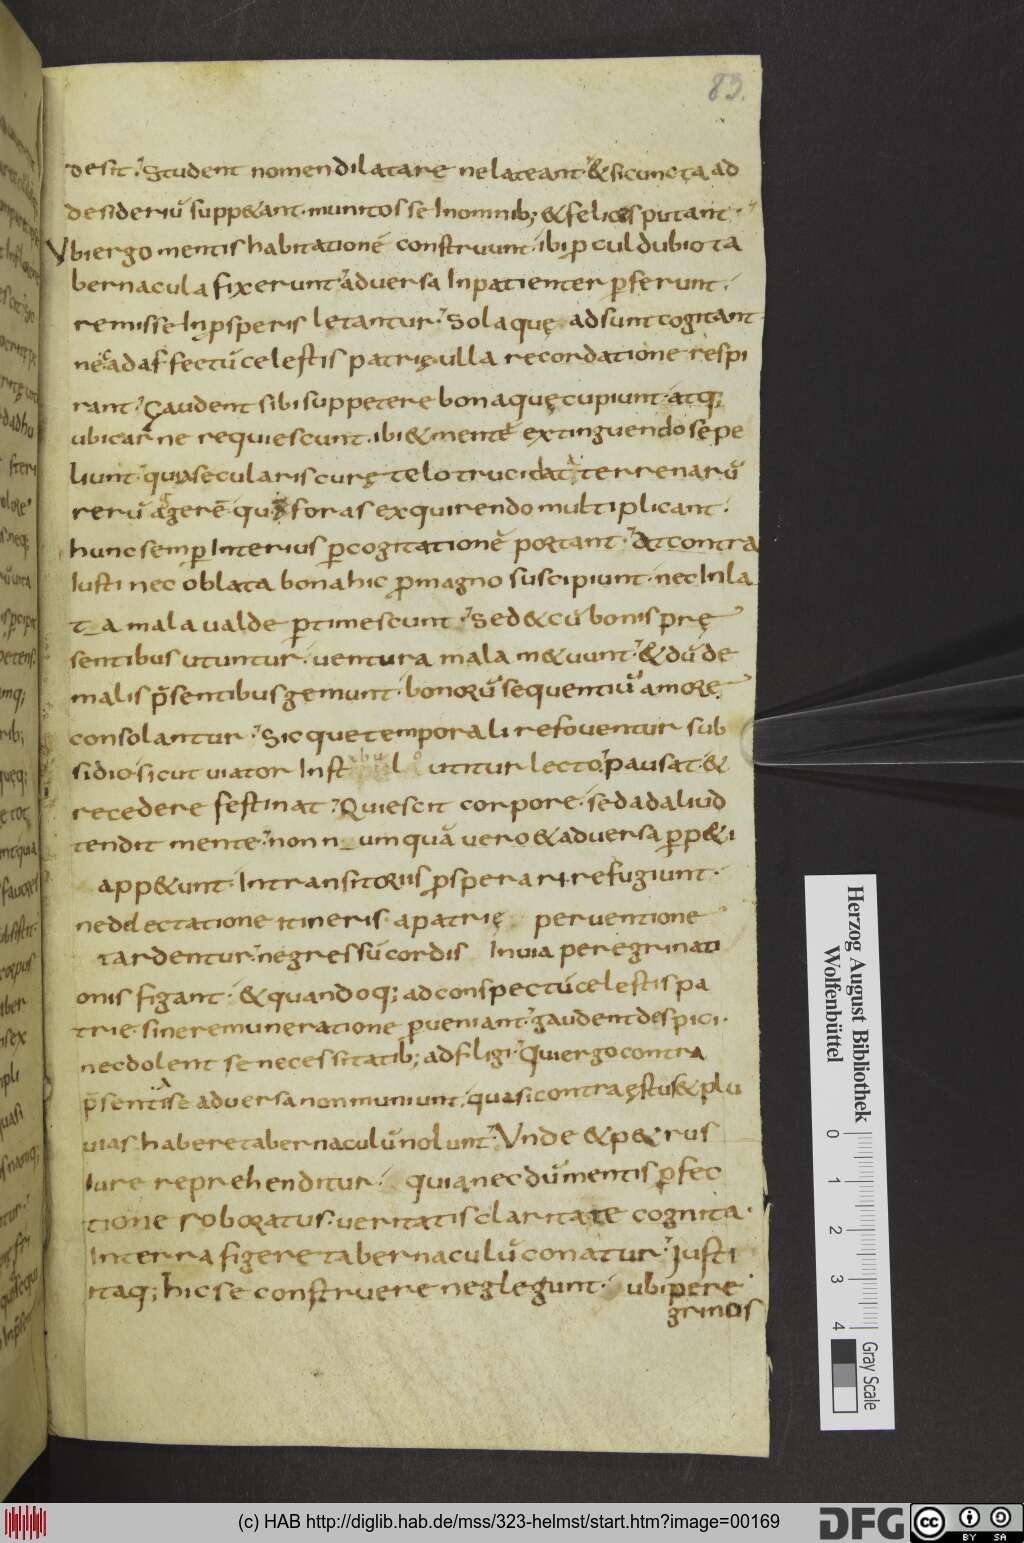 83.
desit. Student nomen dilatare ne lateant. & si cuncta ad
desideriū suppetant. munitos se In omnib; & felices putant.
Vbi ergo mentis habitationē construunt. ibi ꝓcul dubio ta
bernacula fixerunt. adversa Inpatienter ꝑferunt.
remisse In ꝓsperis letantur. Sola quę adsunt cogitant
nec ad affectū celestis patrię ulla recordatione respi
rant. Gaudent sibi suppetere bona quę cupiunt. atq;
ubi carne requiescunt. ibi & mentē extinguendo sepe
liunt. quia secularis curę telo trucidata. terrenarū
rerū aggerē quē foras exquirendo multiplicant.
hunc semꝑ Interius ꝑ cogitationē portant. At contra
Iusti nec oblata bona hic ꝓ magno suscipiunt. nec Inla
ta mala ualde ꝑtimescunt. Sed & cū bonis prę
sentibus utuntur. uentura mala metuunt. & dū de
malis p̄sentibus gemunt. bonorū sequentiū amore
consolantur. Sicque temporali refoventur sub
sidio. sicut uiator In stabulo utitur lecto. pausat. &
recedere festinat. Quiescit corpore. sed ad aliud
tendit mente. non n umquā vero & adversa ꝑpeti
appetunt. In transitoriis ꝓsperari refugiunt.
ne delectatione itineris. a patrię perventione
tardentur. ne gressū cordis In uia peregrinati
onis figant. & quandoq; ad conspectū celestis pa
trie. sine remuneratione ꝑueniant. gaudent despici.
nec dolent se necessitatib; adfligi. Qui ergo contra
p̄sentia se adversa non muniunt. quasi contra ęstus & plu
uias habere tabernaculū nolunt. Vnde & petrus
Iure reprehenditur. quia necdū mentis ꝑfec
tione roboratus. ueritatis claritate cognita.
In terra figere tabernaculū conatur. Iusti
itaq; hic se construere neglegunt. ubi pere
grinos
Herzog August Bibliothek
Wolfenbüttel
0 1 2 3 4
Gray Scale
(c) HAB http://diglib.hab.de/mss/323-helmst/start.htm?image=00169
DFG
cc BY SA